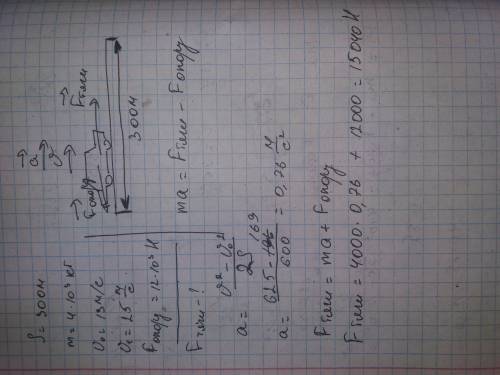 S = 300м
m = 4·10³ кг
υ₀ = 13 м/с
υ₁ = 25 м/с
Fсопру = 12·10³ Н
Fтяги - ?
a υ
Fсопру Fтяги
300м
ma = Fтяги - Fсопру
a = (υ² - υ₀²) / 2S
a = (625 - 169) / 600 = 0,76 м/с²
Fтяги = ma + Fсопру
Fтяги = 4000·0,76 + 12000 = 15040 Н